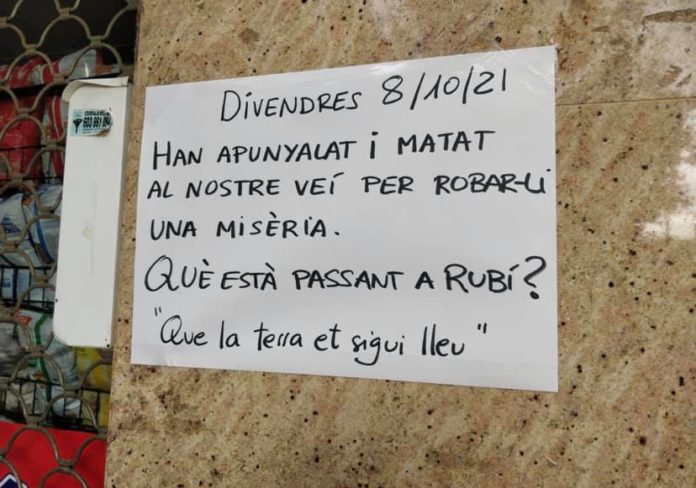 DIVENDRES 8/10/21
HAN APUNYALAT i MATAT
AL NOSTRE VEÍ PER ROBAR-LI
UNA MISÈRIA.
QUÈ ESTÀ PASSANT A RUBÍ?
"Que la terra et sigui lleu"